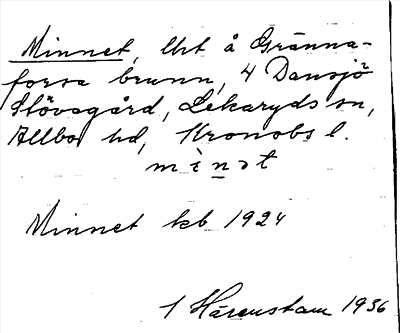 Minnet, lht å Gränna-
forsa brunn, 4 Dansjö
Stövsgård, Lekaryds sn,
Allbo hd, Kronobs l.
mìnət
Minnet kb 1924
1 Härenstam 1936